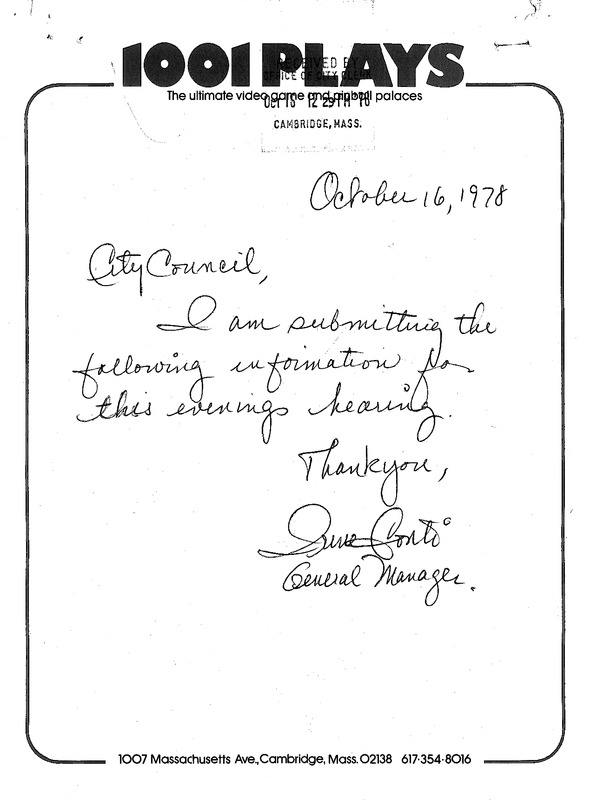 1001 PLAYS
RECEIVED BY
OFFICE OF CITY CLERK
The ultimate video game and pinball palaces
OCT 16 12 29 PM '78
CAMBRIDGE, MASS.
October 16, 1978
City Council,
I am submitting the
following information for
this evenings hearing.
Thankyou,
Conti
General Manager.
1007 Massachusetts Ave., Cambridge, Mass. 02138 617·354·8016